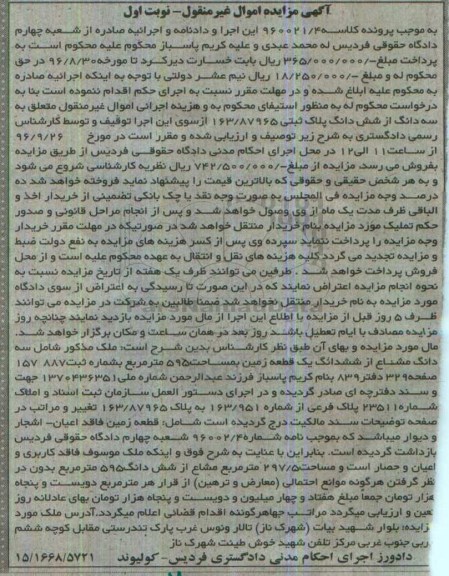 آگهی مزایده اموال غیرمنقول- نوبت اول
به موجب پرونده کلاسه ۹۶۰۰۲۱/۴ این اجرا و دادنامه و اجرائیه صادره از شعبه چهارم
دادگاه حقوقی فردیس له محمد عبدی و علیه کریم پاسباز محکوم علیه محکوم است به
پرداخت مبلغ ۳۶۵/۰۰۰/۰۰۰/- ریال بابت خسارت دیرکرد تا مورخه ۹۶/۸/۳۰ در حق
محکوم له و مبلغ ۱۸/۲۵۰/۰۰۰/- ریال نیم عشر دولتی با توجه به اینکه اجرائیه صادره
به محکوم علیه ابلاغ شده و در مهلت مقرر نسبت به اجرای حکم اقدام ننموده است بنا به
درخواست محکوم له به منظور استیفای محکوم به و هزینه اجرائی اموال غیرمنقول متعلق به
سه دانگ از شش دانگ پلاک ثبتی ۱۶۳/۸۷۹۶۵ ازسوی این اجرا توقیف و توسط کارشناس
رسمی دادگستری به شرح زیر توصیف و ارزیابی شده و مقرر است در مورخ ۹۶/۹/۲۶
از ساعت ۱۱ الی ۱۲ در محل اجرای احکام مدنی دادگاه حقوقی فردیس از طریق مزایده
بفروش می رسد. مزایده از مبلغ ۷۴۲/۵۰۰/۰۰۰/- ریال نظریه کارشناسی شروع می شود
و به هر شخص حقیقی و حقوقی که بالاترین قیمت را پیشنهاد نماید فروخته خواهد شد ده
درصد وجه مزایده فی المجلس به صورت وجه نقد یا چک بانکی تضمینی از خریدار اخذ و
الباقی ظرف مدت یک ماه از وی وصول خواهد شد و پس از انجام مراحل قانونی و صدور
حکم تملیک مورد مزایده بنام خریدار منتقل خواهد شد در صورتیکه در مهلت مقرر خریدار
وجه مزایده را پرداخت ننماید سپرده وی پس از کسر هزینه های مزایده به نفع دولت ضبط
و مزایده تجدید می گردد کلیه هزینه های نقل و انتقال به عهده محکوم علیه است و از محل
فروش پرداخت خواهد شد. طرفین می توانند ظرف یک هفته از تاریخ مزایده نسبت به
نحوه انجام مزایده اعتراض نمایند که در این صورت تا رسیدگی به اعتراض از سوی دادگاه
مورد مزایده به نام خریدار منتقل نخواهد شد ضمنا طالبین به شرکت در مزایده می توانند
ظرف ۵ روز قبل از مزایده با اطلاع این اجرا از مال مورد مزایده بازدید نمایند چنانچه روز
مزایده مصادف با ایام تعطیل باشد روز بعد در همان ساعت و مکان برگزار خواهد شد.
مال مورد مزایده و بهای آن طبق نظر کارشناس بدین شرح است: ملک مذکور شامل سه
دانگ مشاع از ششدانگ یک قطعه زمین بمساحت ۵۹۵ مترمربع بشماره ثبت ۸۸۷ ۱۵۷
صفحه ۳۲۹ دفتر ۸۳۹ بنام کریم پاسباز فرزند عبدالرحمن شماره ملی ۱۳۷۰۴۳۶۳۵۱ جهت
و سند دفترچه ای صادر گردیده و در اجرای دستور العمل سازمان ثبت اسناد و املاک
شماره ۲۳۵۱۱ پلاک فرعی از شماره ۱۶۳/۹۵۱ به پلاک ۱۶۳/۸۷۹۶۵ تغییر و مراتب در
صفحه توضیحات سند مالکیت درج گردیده است شامل: قطعه زمین فاقد اعیان- اشجار
و دیوار میباشد که بموجب نامه شماره ۹۶۰۰۲/۴ شعبه چهارم دادگاه حقوقی فردیس
بازداشت گردیده است. بنابراین با عنایت به شرح فوق و اینکه ملک موسوف فاقد کاربری و
اعیان و حصار است و مساحت ۲۹۷/۵ مترمربع مشاع از شش دانگ ۵۹۵ مترمربع بدون در
نظر گرفتن هرگونه موانع احتمالی (معارض و ترهین) از قرار هر مترمربع دویست و پنجاه
هزار تومان جمعا مبلغ هفتاد و چهار میلیون و دویست و پنجاه هزار تومان بهای عادلانه روز
تعین و ارزیابی میگردد مراتب جهاهرگونه اقدام قضائی اعلام میگردد. آدرس ملک مورد
مزایده: بلوار شهید بیات (شهرک ناز) تالار ونوس غرب پارک تندرستی مقابل کوچه ششم
غربی جنوب غربی مرکز تلفن شهید خوش طینت شهرک ناز
دادورز اجرای احکام مدنی دادگستری فردیس- کولیوند ۱۵/۱۶۶۸/۵۷۲۱